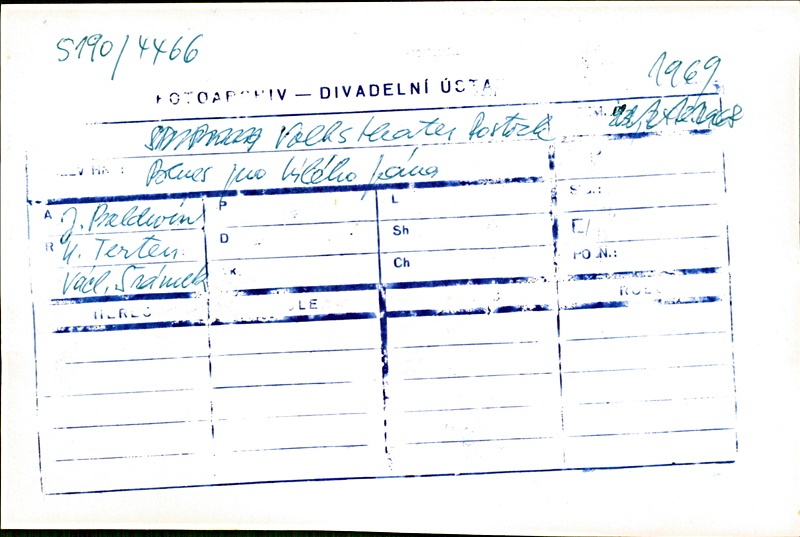 S190/4466
1969
FOTOARCHIV — DIVADELNÍ ÚSTAV
Volkstheater Rostock
Blues pro bílého pána
A J. Baldwin
R H. Terten
Václ. Srámek
P
D
L
Sh
Ch
E/
HEREC
ROLE